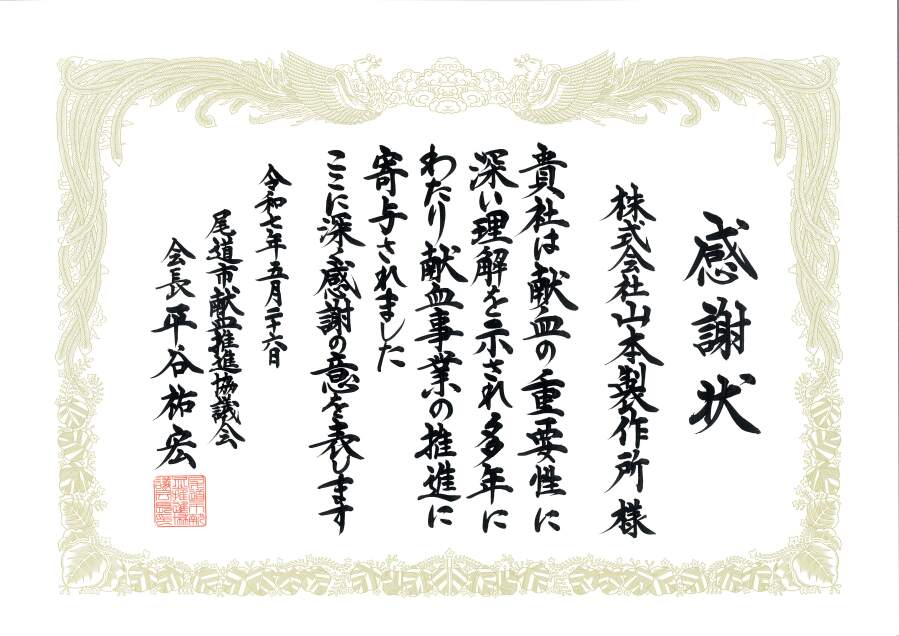 感謝状
株式会社山本製作所 様
貴社は献血の重要性に
深い理解を示され多年に
わたり献血事業の推進に
寄与されました
ここに深く感謝の意を表します
令和七年五月二十六日
尾道市献血推進協議会
会長 平谷祐宏